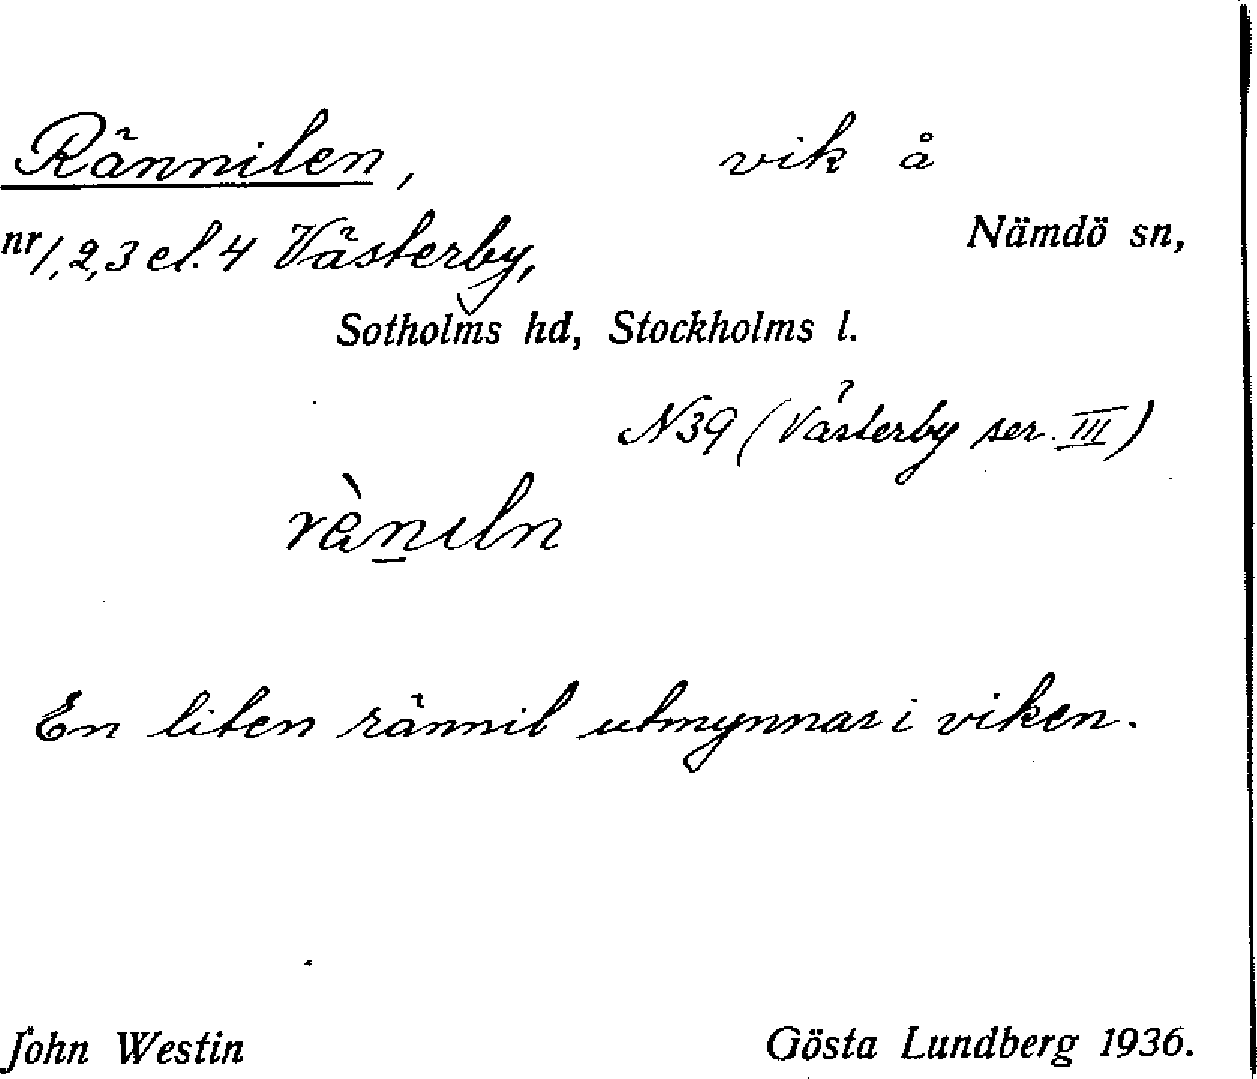 Rännilen, vik å
nr 1,2,3 el. 4 Västerby, Nämdö sn,
Sotholms hd, Stockholms l.
N39 (Västerby ser. III)
En liten rännil utmynnar i viken.
John Westin Gösta Lundberg 1936.